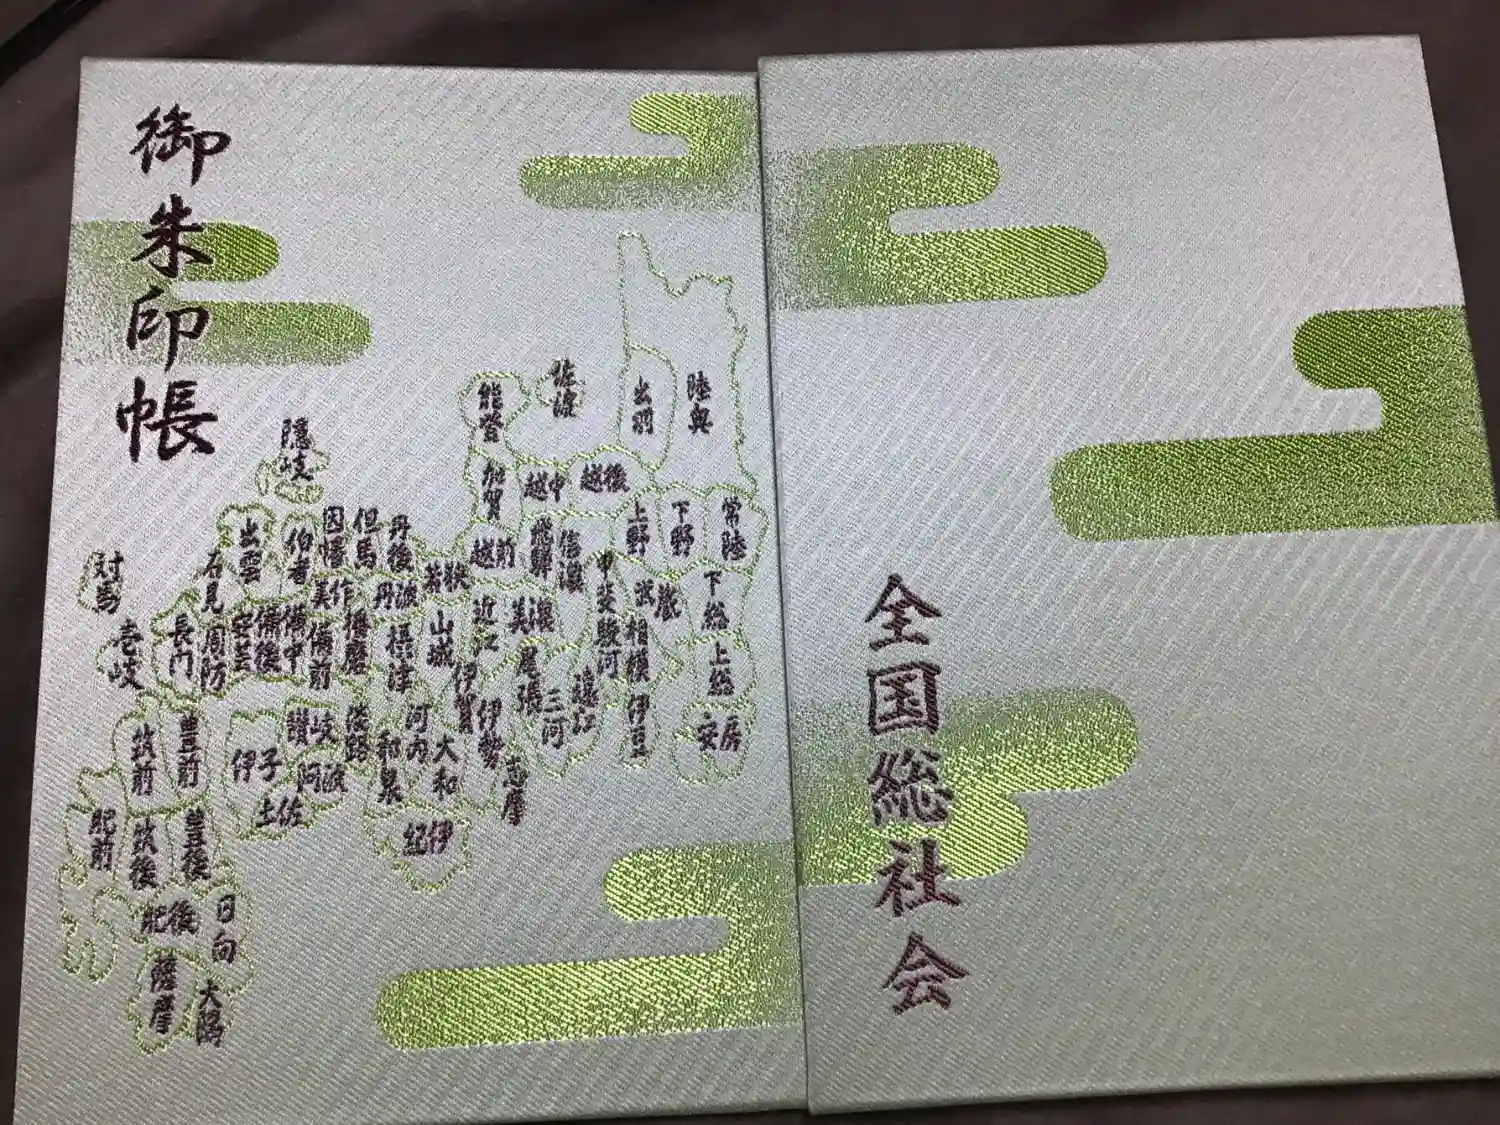 御朱印帳
陸奥
出羽
佐渡
能登
加賀
越中
越後
越前
飛騨
信濃
上野
下野
常陸
下総
上総
安房
武蔵
甲斐
相模
駿河
伊豆
遠江
三河
尾張
美濃
近江
若狭
山城
伊賀
伊勢
志摩
大和
河内
和泉
摂津
紀伊
丹後
丹波
但馬
因幡
美作
播磨
備前
備中
備後
伯耆
隠岐
出雲
石見
安芸
周防
長門
対馬
壱岐
淡路
讃岐
阿波
伊予
土佐
筑前
豊前
肥前
筑後
豊後
肥後
日向
薩摩
大隅
全国総社会